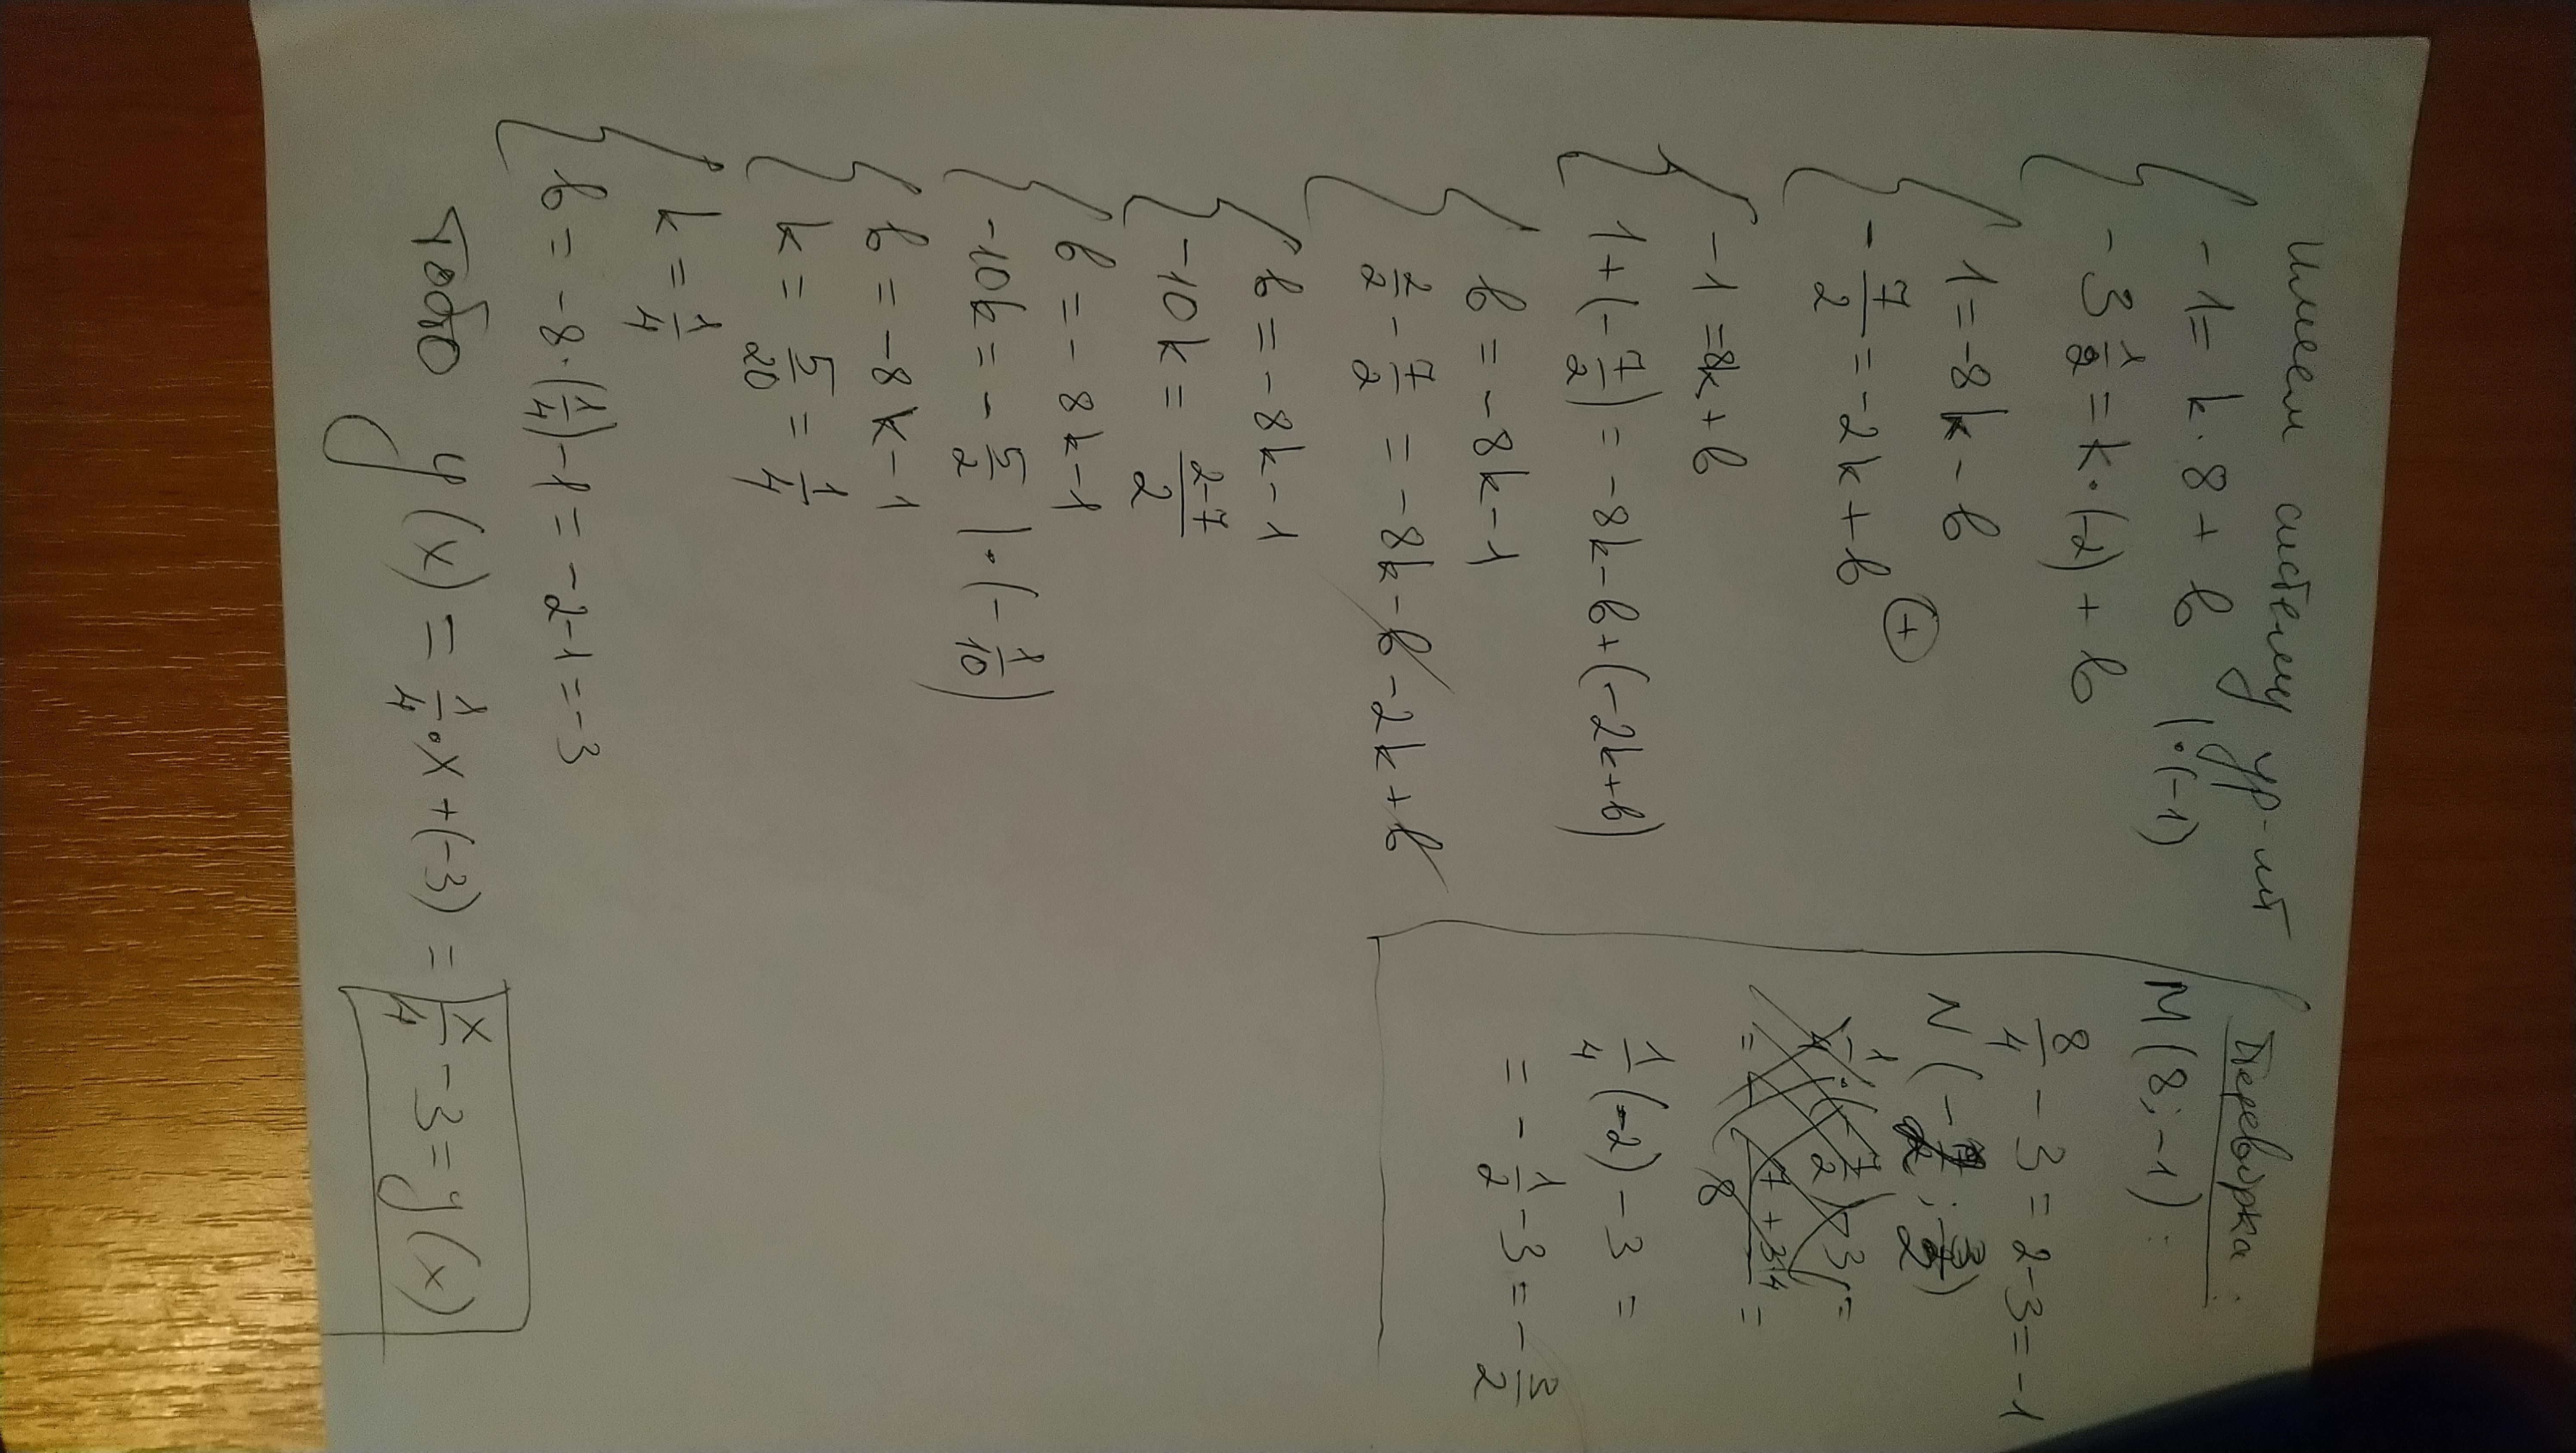 Имеем систему ур-ий
-1 = k·8 + b |·(-1)
-3 1/2 = k·(-2) + b
1 = -8k - b
-7/2 = -2k + b (+)
-1 = 8k + b
1 + (-7/2) = -8k - b + (-2k + b)
b = -8k - 1
2/2 - 7/2 = -8k - b - 2k + b
b = -8k - 1
-10k = (2-7)/2
b = -8k - 1
-10k = -5/2 |·(-1/10)
b = -8k - 1
k = 5/20 = 1/4
k = 1/4
b = -8·(1/4) - 1 = -2 - 1 = -3
тобто y(x) = 1/4·x + (-3) = x/4 - 3 = y(x)
Перевірка:
M(8; -1):
8/4 - 3 = 2 - 3 = -1
1/4 (-2) - 3 =
= -1/2 - 3 = -3/2